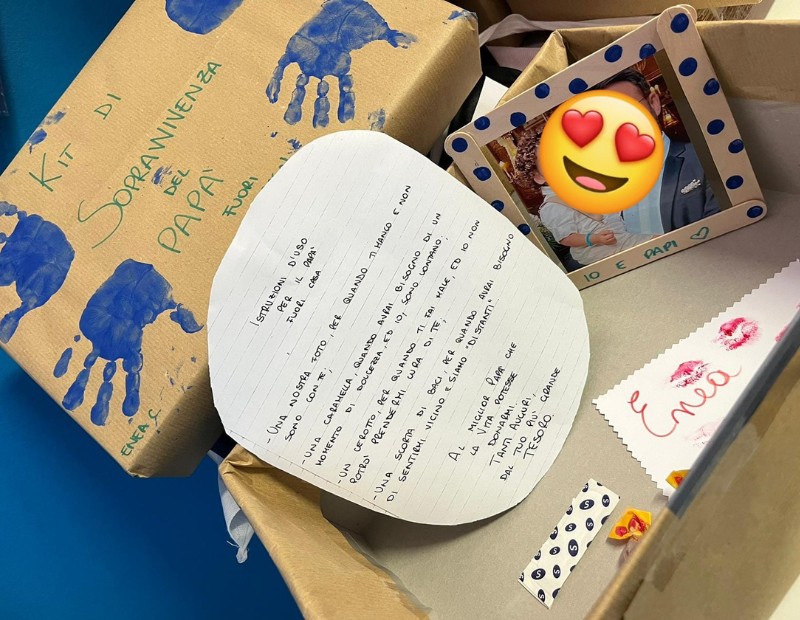 KIT DI
SOPRAVVIVENZA
DEL
PAPÀ
FUORI
ENEA C.
ISTRUZIONI D'USO
PER IL PAPÀ
FUORI CASA
- UNA NOSTRA FOTO, PER QUANDO TI MANCO E NON
SONO CON TE;
- UNA CARAMELLA, QUANDO AVRAI BISOGNO DI UN
MOMENTO DI DOLCEZZA, ED IO, SONO LONTANO;
- UN CEROTTO, PER QUANDO TI FAI MALE, ED IO NON
POTRÒ PRENDERMI CURA DI TE;
- UNA SCORTA DI BACI, PER QUANDO AVRAI BISOGNO
DI SENTIRMI VICINO E SIAMO DISTANTI.
AL MIGLIOR PAPÀ CHE
LA VITA POTESSE
DONARMI.
TANTI AUGURI,
DAL TUO PIÙ GRANDE
TESORO.
IO E PAPI ♡
Enea